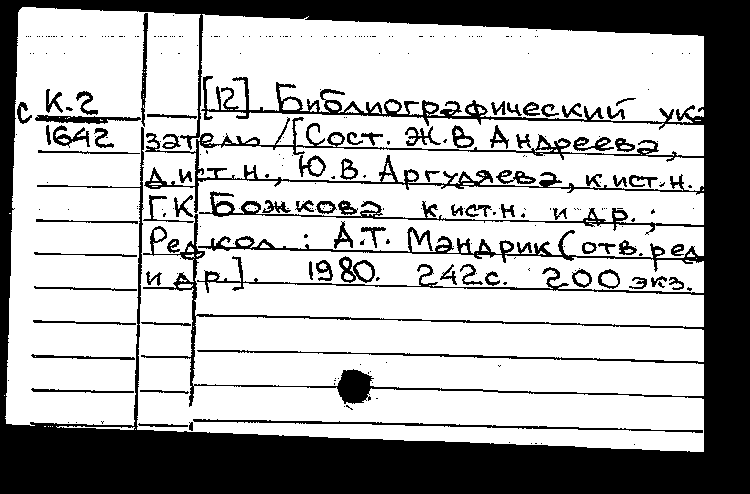 с К.2 [12]. Библиографический ука
1642 затель /[Сост. Ж.В. Андреева,
д.ист.н., Ю.В. Аргудяева, к.ист.н.,
Г.К Божкова к.ист.н. и др.;
Редкол.: А.Т. Мандрик (отв.ред
и др.]. 1980. 242с. 200 экз.